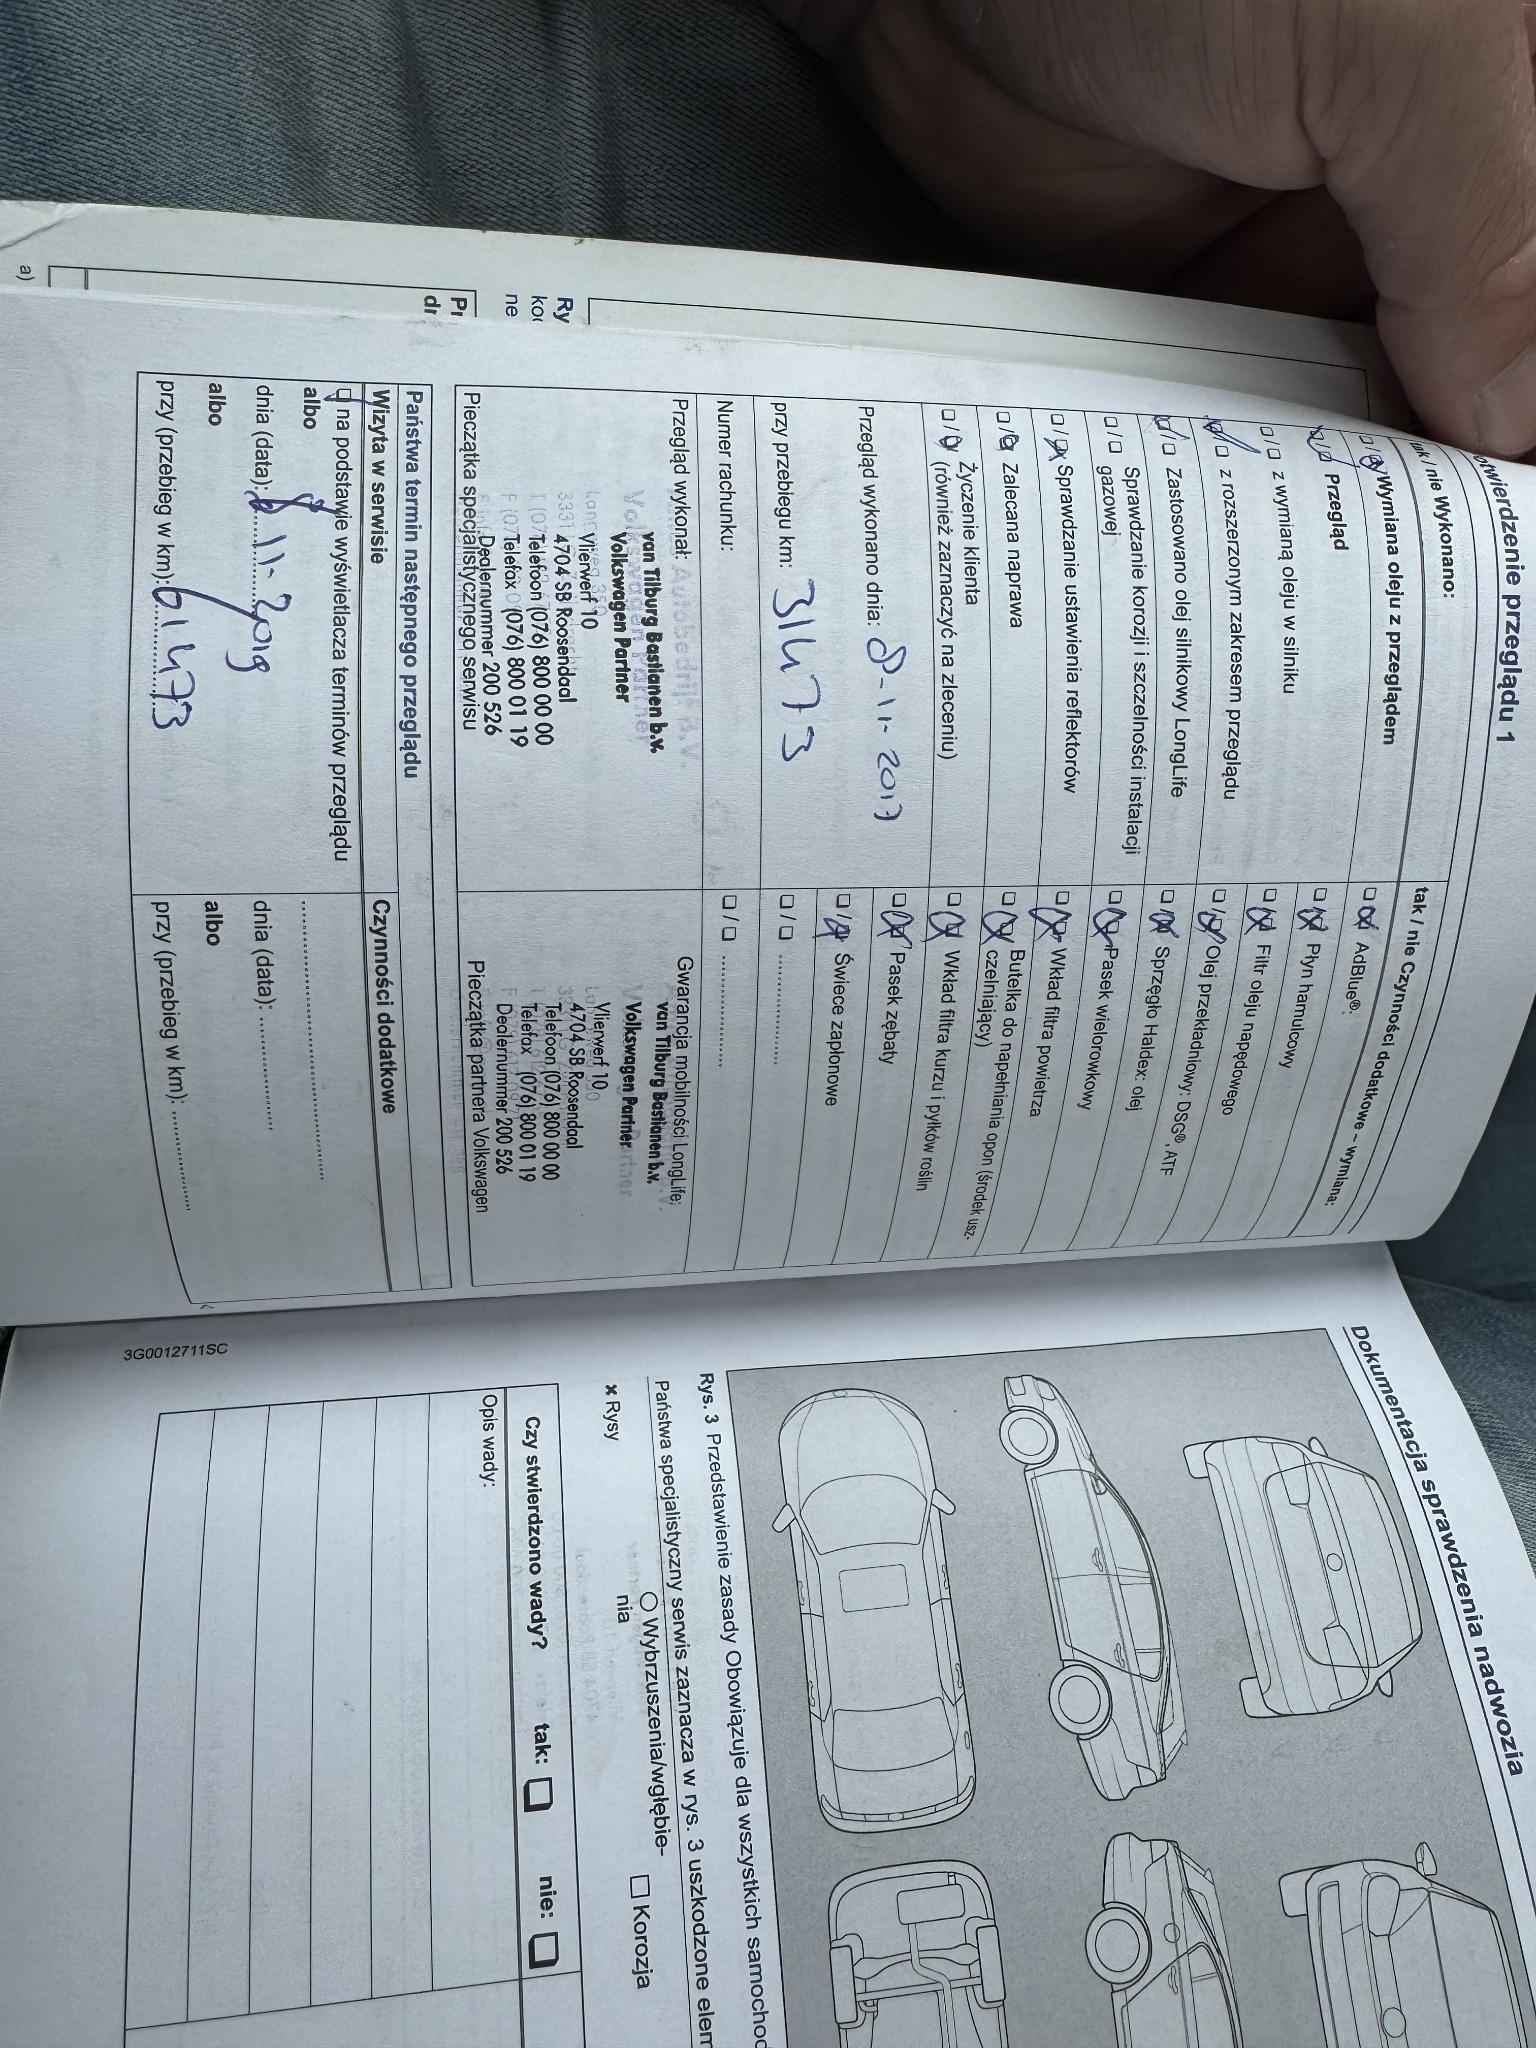 Potwierdzenie przeglądu 1
tak / nie Wykonano:
□/□ Wymiana oleju z przeglądem
□/□ Przegląd
□/□ z wymianą oleju w silniku
□/□ z rozszerzonym zakresem przeglądu
□/□ Zastosowano olej silnikowy LongLife
□/□ Sprawdzanie korozji i szczelności instalacji
gazowej
□/□ Sprawdzanie ustawienia reflektorów
□/□ Zalecana naprawa
□/□ Życzenie klienta
(również zaznaczyć na zleceniu)
Przegląd wykonano dnia: 8-11-2017
przy przebiegu km: 31473
Numer rachunku:
Przegląd wykonał:
van Tilburg Bastianen b.v.
Volkswagen Partner
Vlierwerf 10
4704 SB Roosendaal
Telefoon (076) 800 00 00
Telefax (076) 800 01 19
Dealernummer 200 526
Pieczątka specjalistycznego serwisu
tak / nie Czynności dodatkowe – wymiana:
□/□ AdBlue®:
□/□ Płyn hamulcowy
□/□ Filtr oleju napędowego
□/□ Olej przekładniowy: DSG®, ATF
□/□ Sprzęgło Haldex: olej
□/□ Pasek wielorowkowy
□/□ Wkład filtra powietrza
□/□ Butelka do napełniania opon (środek usz-
czelniający)
□/□ Wkład filtra kurzu i pyłków roślin
□/□ Pasek zębaty
□/□ Świece zapłonowe
□/□ ..................
□/□ ..................
Gwarancja mobilności LongLife:
van Tilburg Bastianen b.v.
Volkswagen Partner
Vlierwerf 10
4704 SB Roosendaal
Telefoon (076) 800 00 00
Telefax (076) 800 01 19
Dealernummer 200 526
Pieczątka partnera Volkswagen
Państwa termin następnego przeglądu
Wizyta w serwisie
□ na podstawie wyświetlacza terminów przeglądu
albo
dnia (data): 8-11-2019
albo
przy (przebieg w km): 61473
Czynności dodatkowe
dnia (data): ..................
albo
przy (przebieg w km): ..................
Ry
ne
a)
Dokumentacja sprawdzenia nadwozia
Rys. 3 Przedstawienie zasady Obowiązuje dla wszystkich samochod
Państwa specjalistyczny serwis zaznacza w rys. 3 uszkodzone elem
× Rysy
○ Wybrzuszenia/wgłębie-
nia
□ Korozja
Czy stwierdzono wady? tak: □ nie: □
Opis wady:
3G0012711SC